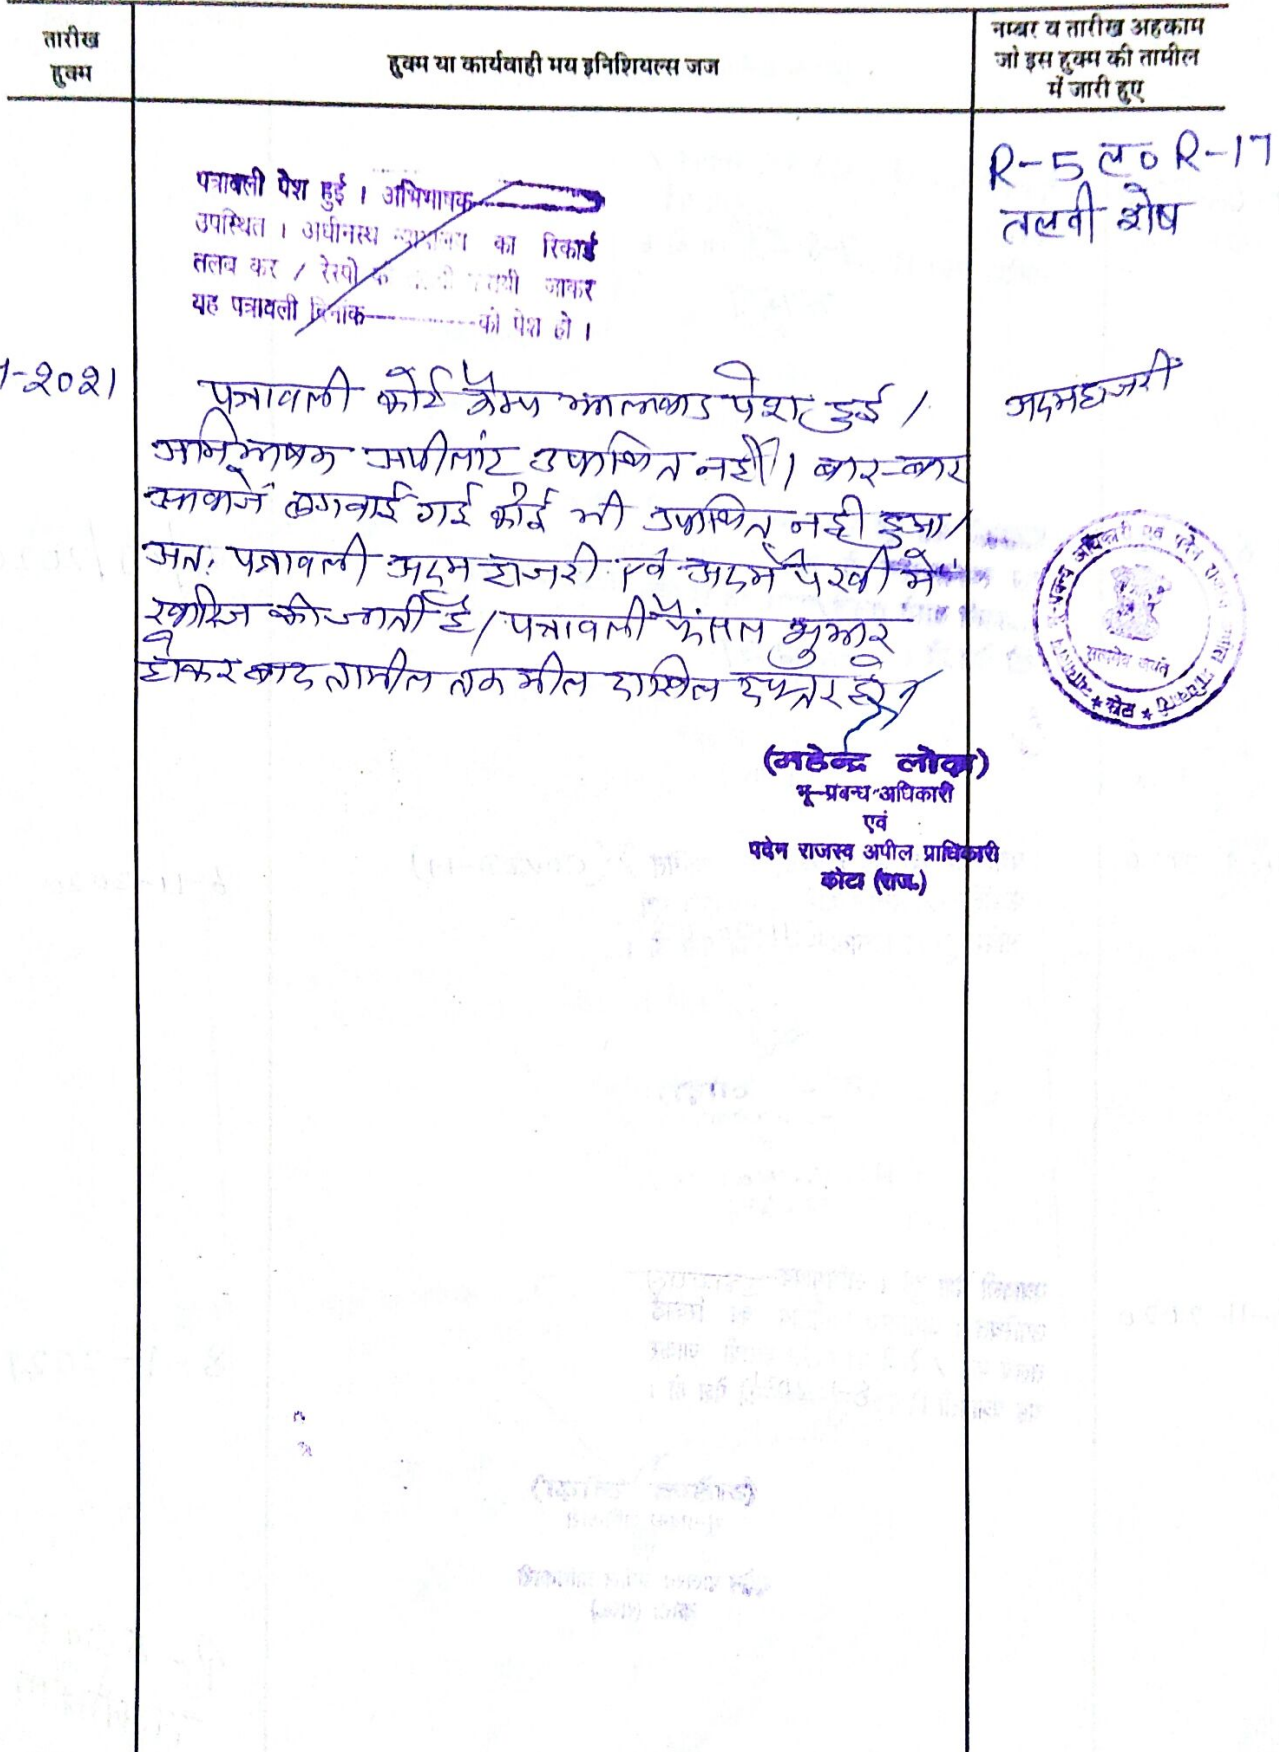 तारीख
हुक्म
हुक्म या कार्यवाही मय इनिशियल्स जज
नम्बर व तारीख अहकाम
जो इस हुक्म की तामील
में जारी हुए
R-5 ल0 R-17
तलवी शेष
पत्रावली पेश हुई । अभिभाषक
उपस्थित । अधीनस्थ का रिकार्ड
तलब कर / रेस्पो जाकर
यह पत्रावली दिनांक------------को पेश हो ।
-2021
पत्रावली कोर्ट कैम्प झालावाड पेश हुई /
अदमहाजरी
अभिभाषक अपीलांट उपस्थित नहीं । बार-बार
आवाजें लगवाई गई कोई भी उपस्थित नही हुआ /
अतः पत्रावली अदम हाजरी एवं अदम पैरवी में
खारिज की जाती है / पत्रावली फैसल शुमार
होकर बाद तामील तकमील दाखिल दफ्तर हो ।
(महेन्द्र लोढा)
भू-प्रबन्ध अधिकारी
एवं
पदेन राजस्व अपील प्राधिकारी
कोटा (राज.)
सत्यमेव जयते